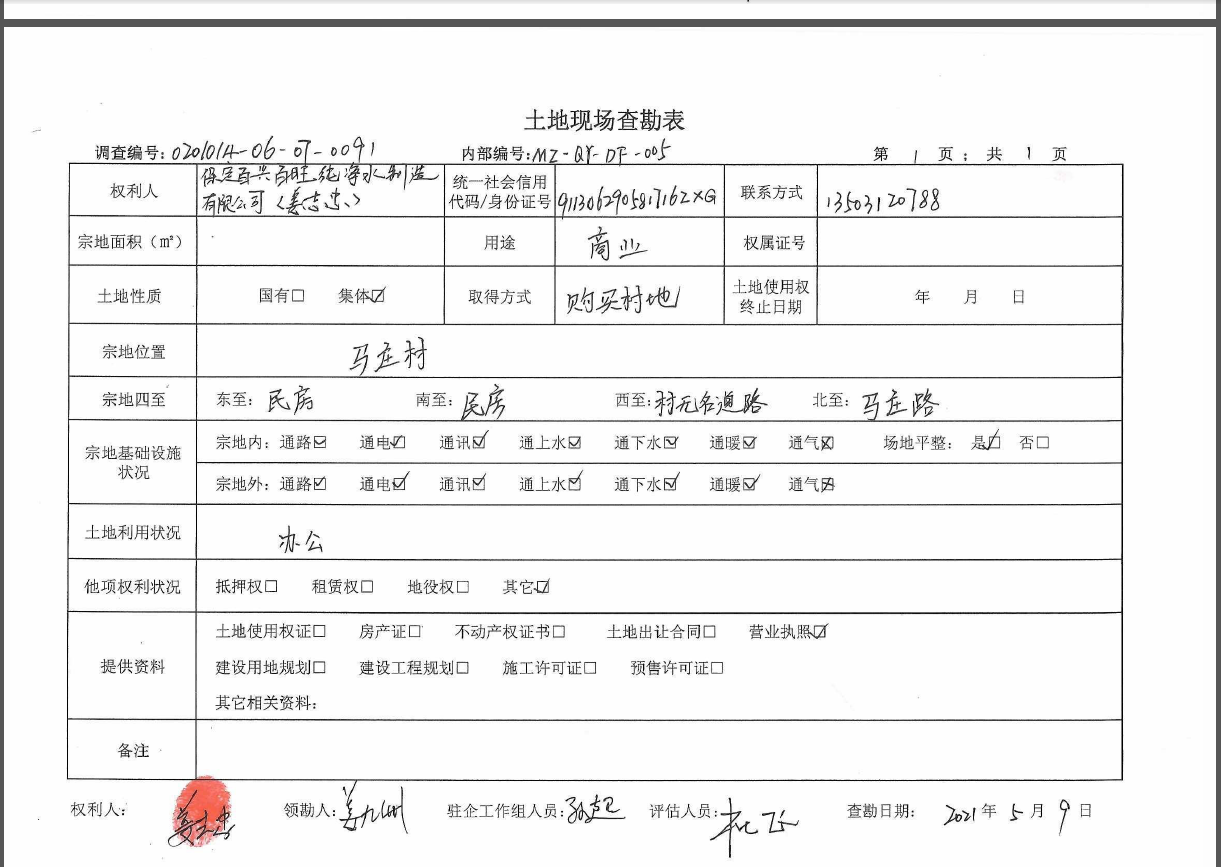 土地现场查勘表
调查编号:0201014-06-07-0091 内部编号:MZ-QY-DF-005 第 1 页; 共 1 页
权利人 保定百兴百旺纯净水制造有限公司(姜志忠) 统一社会信用代码/身份证号 9113062905817162XG 联系方式 13503120788
宗地面积(㎡) 用途 商业 权属证号
土地性质 国有□ 集体☑ 取得方式 购买村地 土地使用权终止日期 年 月 日
宗地位置 马庄村
宗地四至 东至: 民房 南至: 民房 西至: 村无名道路 北至: 马庄路
宗地基础设施状况 宗地内: 通路☑ 通电☑ 通讯☑ 通上水☑ 通下水☑ 通暖☑ 通气☒ 场地平整: 是☑ 否□
宗地外: 通路☑ 通电☑ 通讯☑ 通上水☑ 通下水☑ 通暖☑ 通气☒
土地利用状况 办公
他项权利状况 抵押权□ 租赁权□ 地役权□ 其它☑
提供资料 土地使用权证□ 房产证□ 不动产权证书□ 土地出让合同□ 营业执照☑
建设用地规划□ 建设工程规划□ 施工许可证□ 预售许可证□
其它相关资料:
备注
权利人: 姜志忠 领勘人: 姜九洲 驻企工作组人员: 评估人员: 查勘日期: 2021年 5 月 9 日